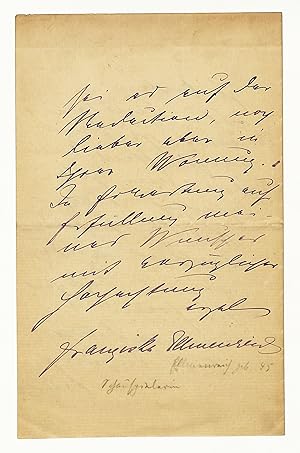 sei es auf der
Redaction, noch
lieber aber in
Ihrer Wonung.
In Erwartung auf
Erfüllung mei-
nes Wunsches
mit vorzüglicher
Hochachtung
Franziska Ellmenreich
Ellmenreich geb 45
Schauspielerin